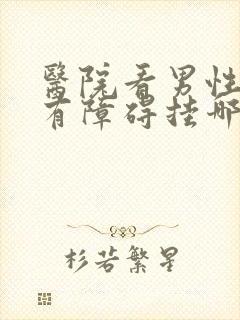 醫院看男性
有障碍挂哪
杉若繁星